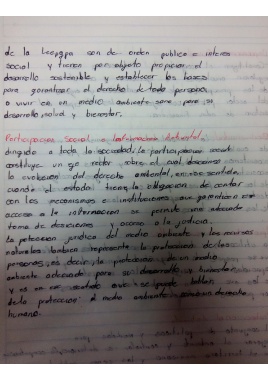 de la Leegepa son de orden publico e interes
social y tienen por objeto propiciar el
desarrollo sostenible y establecer las bases
para garantizar el derecho de toda persona
a vivir en un medio ambiente sano para su
desarrollo, salud y bienestar.
Participacion Social e Informacion Ambiental.
dirigida a toda la sociedad, la participacion social
constituye un eje rector sobre el cual descansa
la evolucion del derecho ambiental, en ese sentido
cuando el estado tiene la obligacion de contar
con los mecanismos e instituciones que garanticen
acceso a la informacion se permite una adecuada
toma de desiciones y acceso a la justicia.
La proteccion juridica del medio ambiente y los recursos
naturales basicos representa la proteccion de las
personas, es decir, la proteccion de un medio
ambiente adecuado para su desarrollo y bienestar
y es en ese sentido que se puede hablar
de la proteccion al medio ambiente derecho
humano.